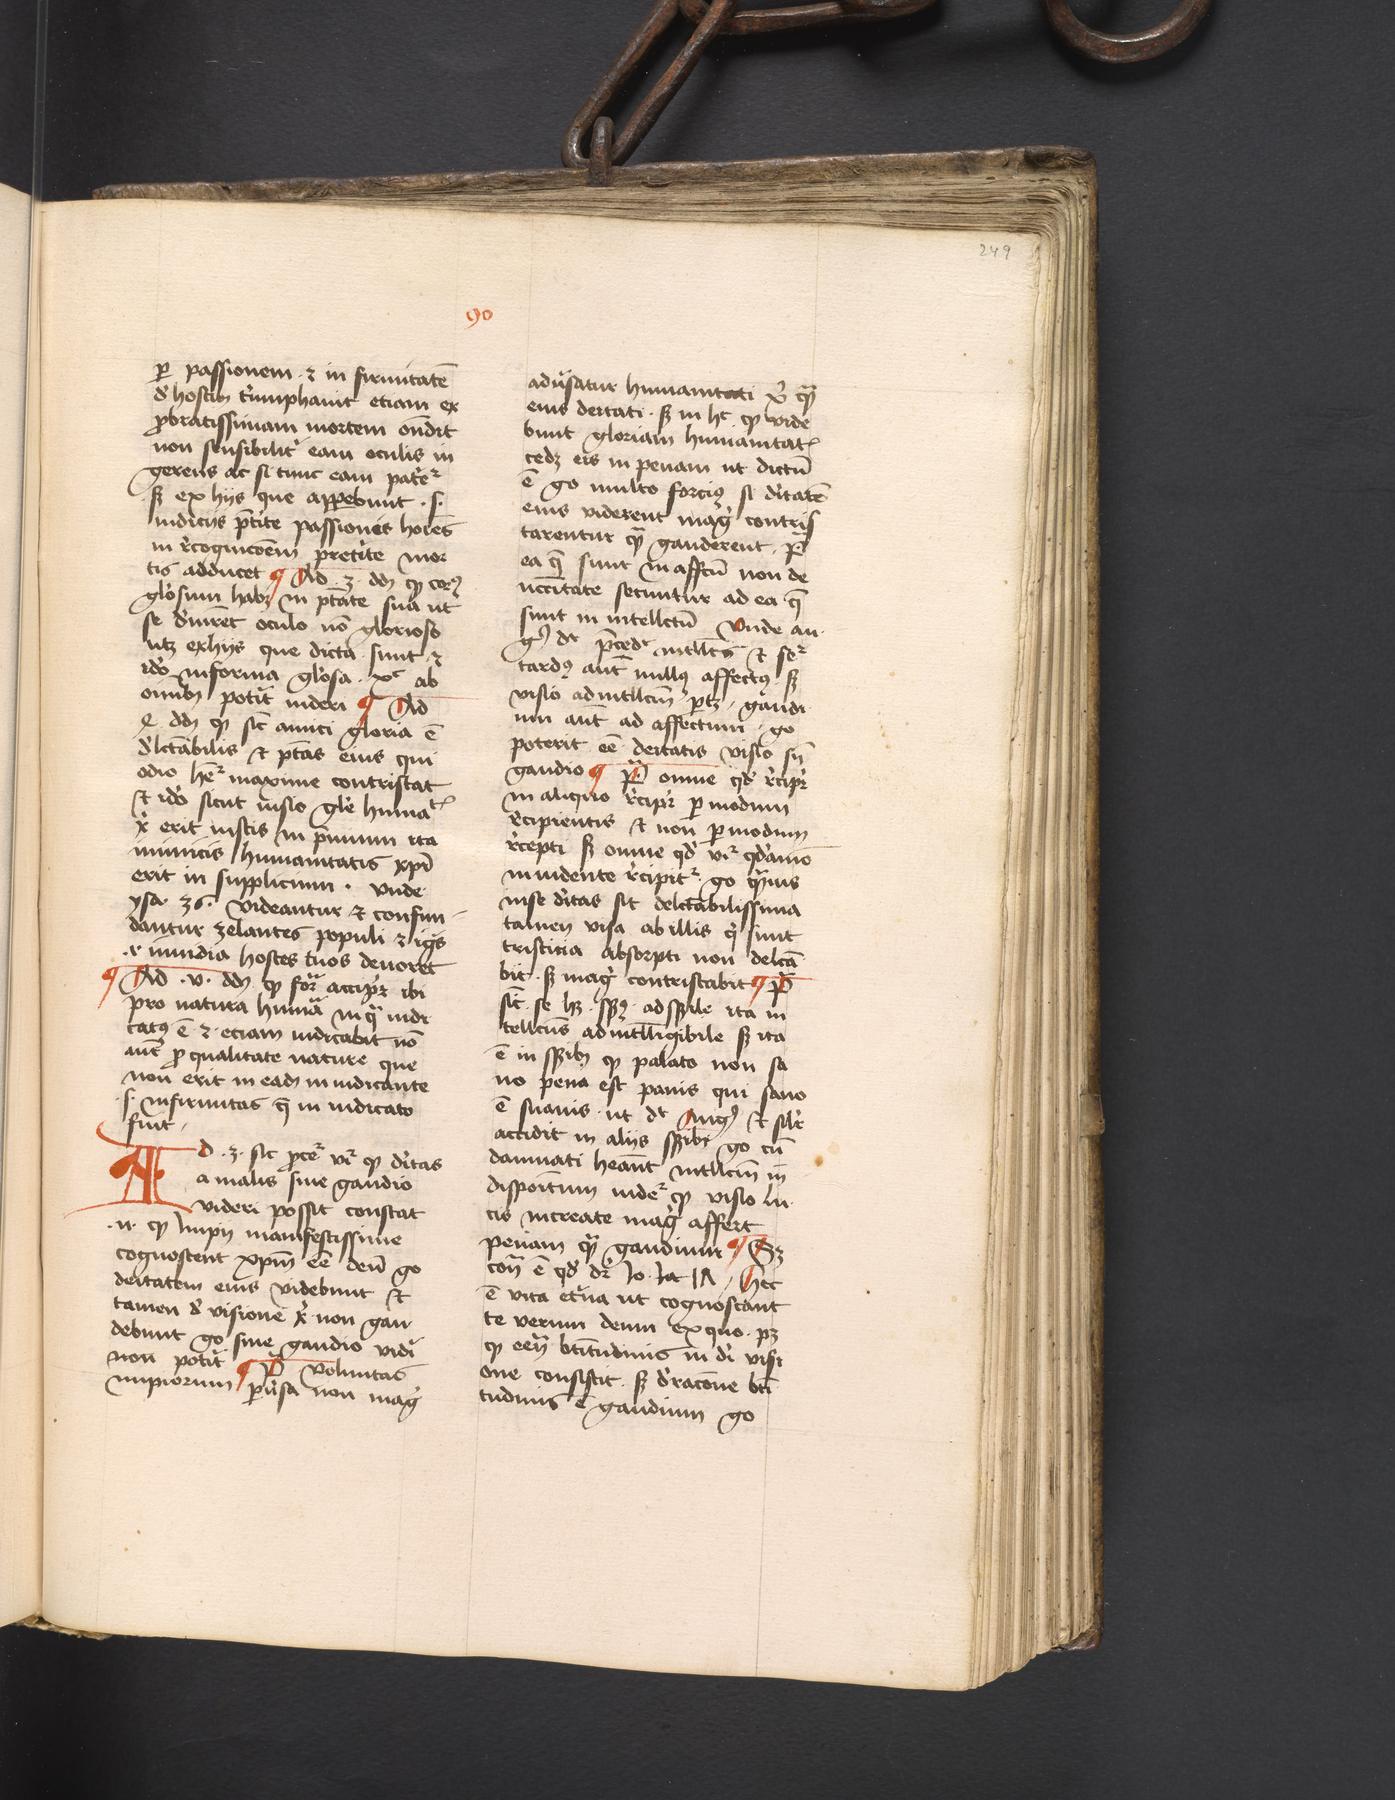 249
90
ꝑ passionem ⁊ in firmitatē
d' hostib triumphauit etiam ex
ꝓbratissimam mortem ondit
non sensibilit' eam oculis in
gerens ac si tunc eam patet᷑
sꝫ ex hijs que appebunt .s.
indicijs pt'ite passionis hoies
in r'cognicoem pret'ite mor
tis adducet ¶ Ad .3. dm ꝙ corꝰ
glosum habꝫ in ptate sua ut
se d'muret oculo no glorioso
utꝫ ex hijs que dicta sunt ⁊
ido in forma glosa xc ab
omib potit uideri ¶ Ad
4 dm ꝙ sic amici gloria ē
d'lctabilis et ptas eius qui
odio het᷑ maxime contristat
et ido sicut uisio gle humatis
x' erit iustis in pmium ita
inimicis humanitatis xpi
erit in supplicium . Vnde
ysa. 36. Videantur et confun
dantur zelantes populi ⁊ igis
hostes tuos deuoret
¶ Ad .v. dm ꝙ for accipit᷑ ibi
pro natura humā in qua iudi
catꝰ ē ⁊ eciam iudicabit nō
aut ꝓ qualitate nature que
non erit in eadm in iudicante
.s. infirmitas que in iudicato
fuit.
Ad .3. sic procet᷑ vi᷑ ꝙ d'itas
a malis sine gaudio
videri possit constat
.n. ꝙ Impij manifestissime
cognoscent xpm eē deū go
deitatem eius videbunt et
tamen d' visione x' non gau
debunt go sine gaudio vidi
non potit ¶ P Voluntas
impiorum puersa non mag'
aduersatur humanitati x' qua
eius deitati . sꝫ in hc ꝙ vide
bunt gloriam humanitatis
cedꝫ eis in penam ut dictū
ē go multo forciꝰ si d'itatē
eius viderent mag' contris
tarentur qua gauderent . P
ea que sunt in affctu non de
necitate secuntur ad ea que
sunt in intellctu Vnde au
gꝰ dt p̄cedt intllcus et set᷑
tardꝰ aut nullꝰ affectꝰ sꝫ
visio ad intllcm ptꝫ . gaudi
um aut ad affectum . go
poterit eē deitatis visio sn
gaudio ¶ P omne qd r'cipit᷑
in aliquo r'cipit᷑ ꝑ modum
r'cipientis et non ꝑ modum
r'cepti sꝫ omne qd vi᷑ qdamo
in uidente r'cipit᷑ . go quis
in se d'itas sit delctabilissima
tamen visa ab illis qi sunt
tristicia absorpti non delcta
bit . sꝫ mag' contristabit ¶ P
sic se hꝫ ssꝰ ad sſbile ita in
tellcus ad intlligibile sꝫ ita
ē in sſibꝫ ꝙ palato non sa
no pena est panis qui sano
ē suauis ut dt Augꝰ et silr
accidit in alijs sſibꝫ go cū
damnati heant intllcm in
dispoitum uidet᷑ ꝙ visio lu
cis increate mag' affert
penam qua gaudium ¶ Sꝫ
con ē qd dr Io. Ia 17 . Hec
ē vita etna ut cognoscant
te verum deum ex quo ptꝫ
ꝙ eēn btitudinis in di visi
one consistit . sꝫ d' racone bti
tudinis ē gaudium go